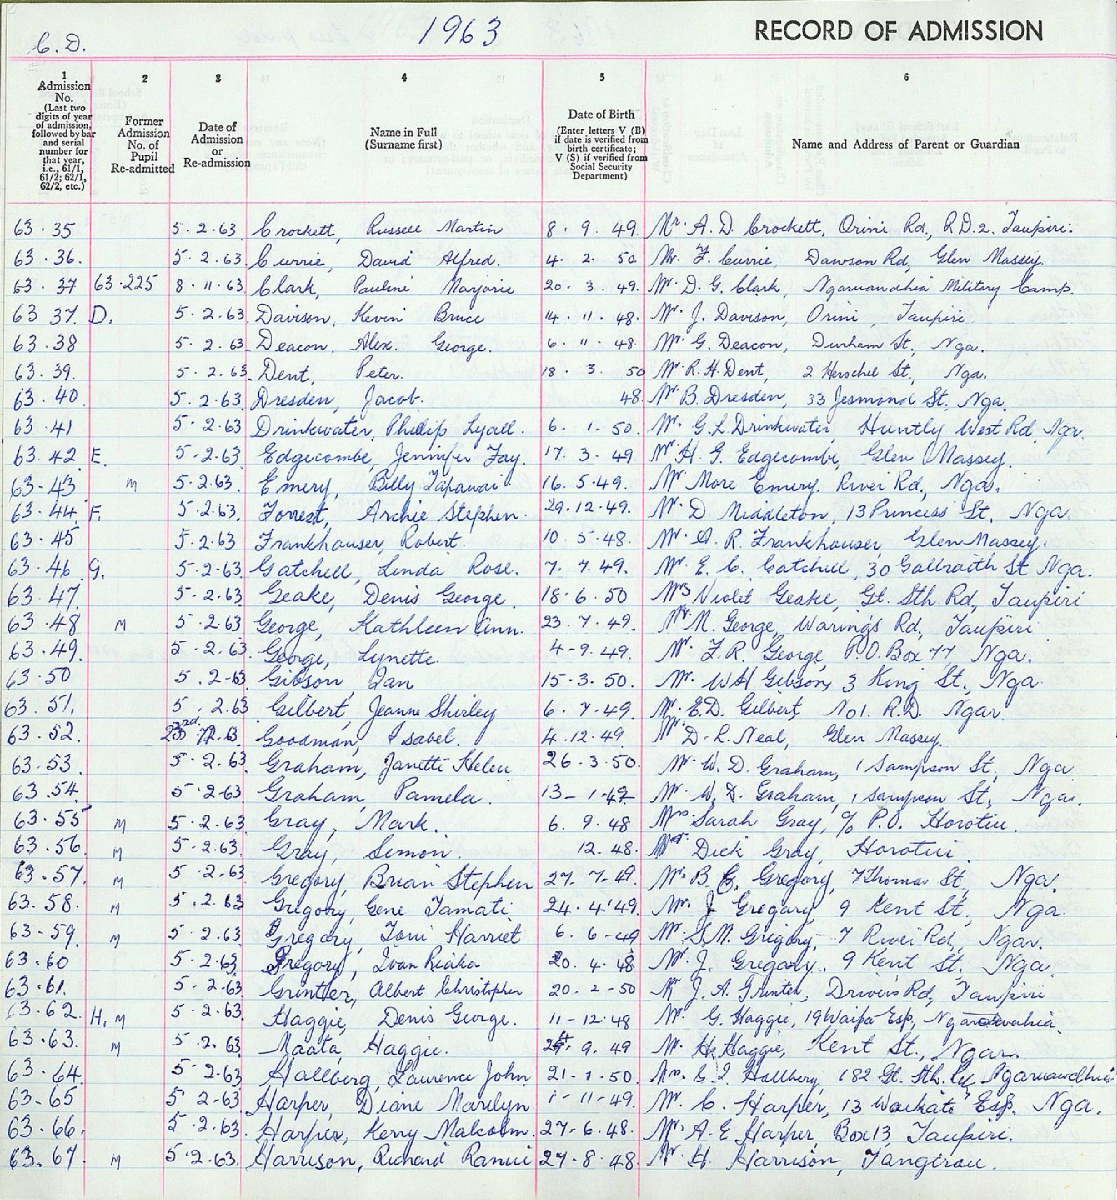 C. D.
1963
RECORD OF ADMISSION
1 2 3 4 5 6
Admission No. (Last two digits of year of admission, followed by bar and serial number for that year, i.e., 61/1, 61/2; 62/1, 62/2, etc.)
Former Admission No. of Pupil Re-admitted
Date of Admission or Re-admission
Name in Full (Surname first)
Date of Birth (Enter letters V (B) if date is verified from birth certificate; V (S) if verified from Social Security Department)
Name and Address of Parent or Guardian
63.35 5.2.63 Crockett, Russell Martin 8.9.49 Mr A. D. Crockett, Orini Rd., R.D.2. Taupiri.
63.36. 5.2.63 Currie, David Alfred. 4.2.50 Mr. F. Currie, Dawson Rd, Glen Massey.
63.37 63.225 8.11.63 Clark, Pauline Marjorie 20.3.49. Mr. D. G. Clark, Ngaruawahia Military Camp.
63 37. D. 5.2.63 Davison, Kevin Bruce 14.11.48. Mr. J. Davison, Orini, Taupiri
63.38 5.2.63 Deacon, Alex. George. 6.11.48. Mr G. Deacon, Durham St, Nga.
63.39. 5.2.63 Dent, Peter. 18.3.50 Mr R. H. Dent, 2 Herschel St, Nga.
63.40. 5.2.63. Dresden, Jacob. 48. Mr B. Dresden, 33 Jesmond St. Nga.
63.41 5.2.63 Drinkwater, Phillip Lyall. 6.1.50. Mr. G. L. Drinkwater Huntly West Rd, Nga.
63.42 E. 5.2.63 Edgecombe, Jennifer Fay. 17.3.49 Mr H. G. Edgecombe, Glen Massey.
63.43 M 5.2.63. Emery, Billy 16.5.49. Mr More Emery. River Rd, Nga.
63.44 F. 5.2.63. Forrest, Archie Stephen. 29.12.49. Mr. D Middleton, 13 Princess St. Nga.
63.45 5.2.63 Frankhauser, Robert. 10.5.48. Mr. R. Frankhauser Glen Massey.
63.46 G. 5.2.63 Gatchell, Linda Rose. 7.7.49. Mr. E. C. Gatchell, 30 Galbraith St Nga.
63.47 5.2.63 Geake, Denis George. 18.6.50 Mrs Violet Geake, Gt. Sth. Rd, Taupiri
63.48 M 5.2.63 George, Kathleen Ann. 23.7.49 Mr. N. George, Warings Rd, Taupiri
63.49. 5.2.63 George, Lynette. 4-9.49. Mr. F. R. George, P.O. Box 77, Nga.
63.50 5.2-63 Gibson, Ian 15-3.50. Mr. W H Gibson, 3 King St., Nga
63.51. 5.2.63 Gilbert, Jeanne Shirley 6.7.49 Mr. E.D. Gilbert, No1. R.D. Ngar.
63.52. Goodman, Isabel. 4.12.49 Mr D. R. Neal, Glen Massey.
63.53 5.2.63 Graham, Janette Helen 26.3.50. Mr. W. D. Graham, 1 Sampson St, Nga
63.54. 5.2.63 Graham, Pamela. 13-1.49 Mr. W. D. Graham, 1 Sampson St, Nga.
63.55 M 5.2.63. Gray, Mark. 6.9.48 Mrs Sarah Gray, c/o P.O. Horotiu.
63.56. M 5.2.63. Gray, Simon. 12.48. Dick Gray, Horotiu
63.57. M 5.2.63 Gregory, Brian Stephen 27.7.49 Mr. B Gregory, 7 Thomas St, Nga.
63.58. M 5.2.63 Gregory, Gene Tamati 24.4.49. Mr. J Gregory 9 Kent St., Nga.
63.59 M 5.2.63. Gregory, Toni Harriet 6.6-49 Mr. Gregory, 7 River Rd, Ngar.
63.60 5.2.63 Gregory, Ivan 20.4.48 Mr. J. Gregory. 9 Kent St. Nga.
63.61. 5.2.63. Grintler, Albert Christopher 20-2-50 Mr J. A. Drivers Rd, Taupiri
63.62. H. M 5.2.63. Haggie, Denis George. 11-12.48 Mr. G. Haggie, 19 Waipa Esp, Ngaruawahia.
63.63. M 5.2.63 Maata, Haggie. 9.49 Mr H. Haggie, Kent St., Ngar.
63.64 5.2.63 Hallberg, Laurence John 21.1.50 Hallberg, 182 Gt. Sth. Ngaruawahia
63.65 5 2.63 Harper, Diane Marilyn 1-11-49. Mr C. Harper, 13 Waikato Esp. Nga.
63.66. 5.2.63. Harper, Kerry Malcolm. 27-6.48. Mr. A. E Harper, Box 13, Taupiri.
63.67 M 5.2.63. Harrison, Richard 27-8.48. Mr H. Harrison,